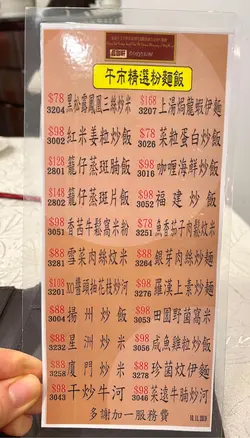 午市精選粉麵飯
$78 3204 黑松露鳳凰三絲炒米
$168 3207 上湯焗龍蝦伊麵
$98 3002 紅米姜粒炒飯
$78 3026 菜粒蛋白炒飯
$128 2801 龍仔蒸斑腩飯
$98 3016 咖喱海鮮炒飯
$148 2802 龍仔蒸斑片飯
$98 3052 福建炒飯
$98 3051 香茜牛鬆窩米粉
$78 3251 魚香茄子肉鬆炆米
$88 3281 雪菜肉絲炆米
$88 3264 銀芽肉絲炒麵
$108 3201 XO醬頭抽花枝炒河
$98 3276 羅漢上素炒麵
$88 3004 揚州炒飯
$98 3053 田園野菌窩米
$88 3512 星洲炒米
$98 3056 咸魚雞粒炒飯
$88 3258 廈門炒米
$88 3278 珍菌炆伊麵
$98 3043 干炒牛河
$98 3046 菜遠牛腩炒河
多謝加一服務費